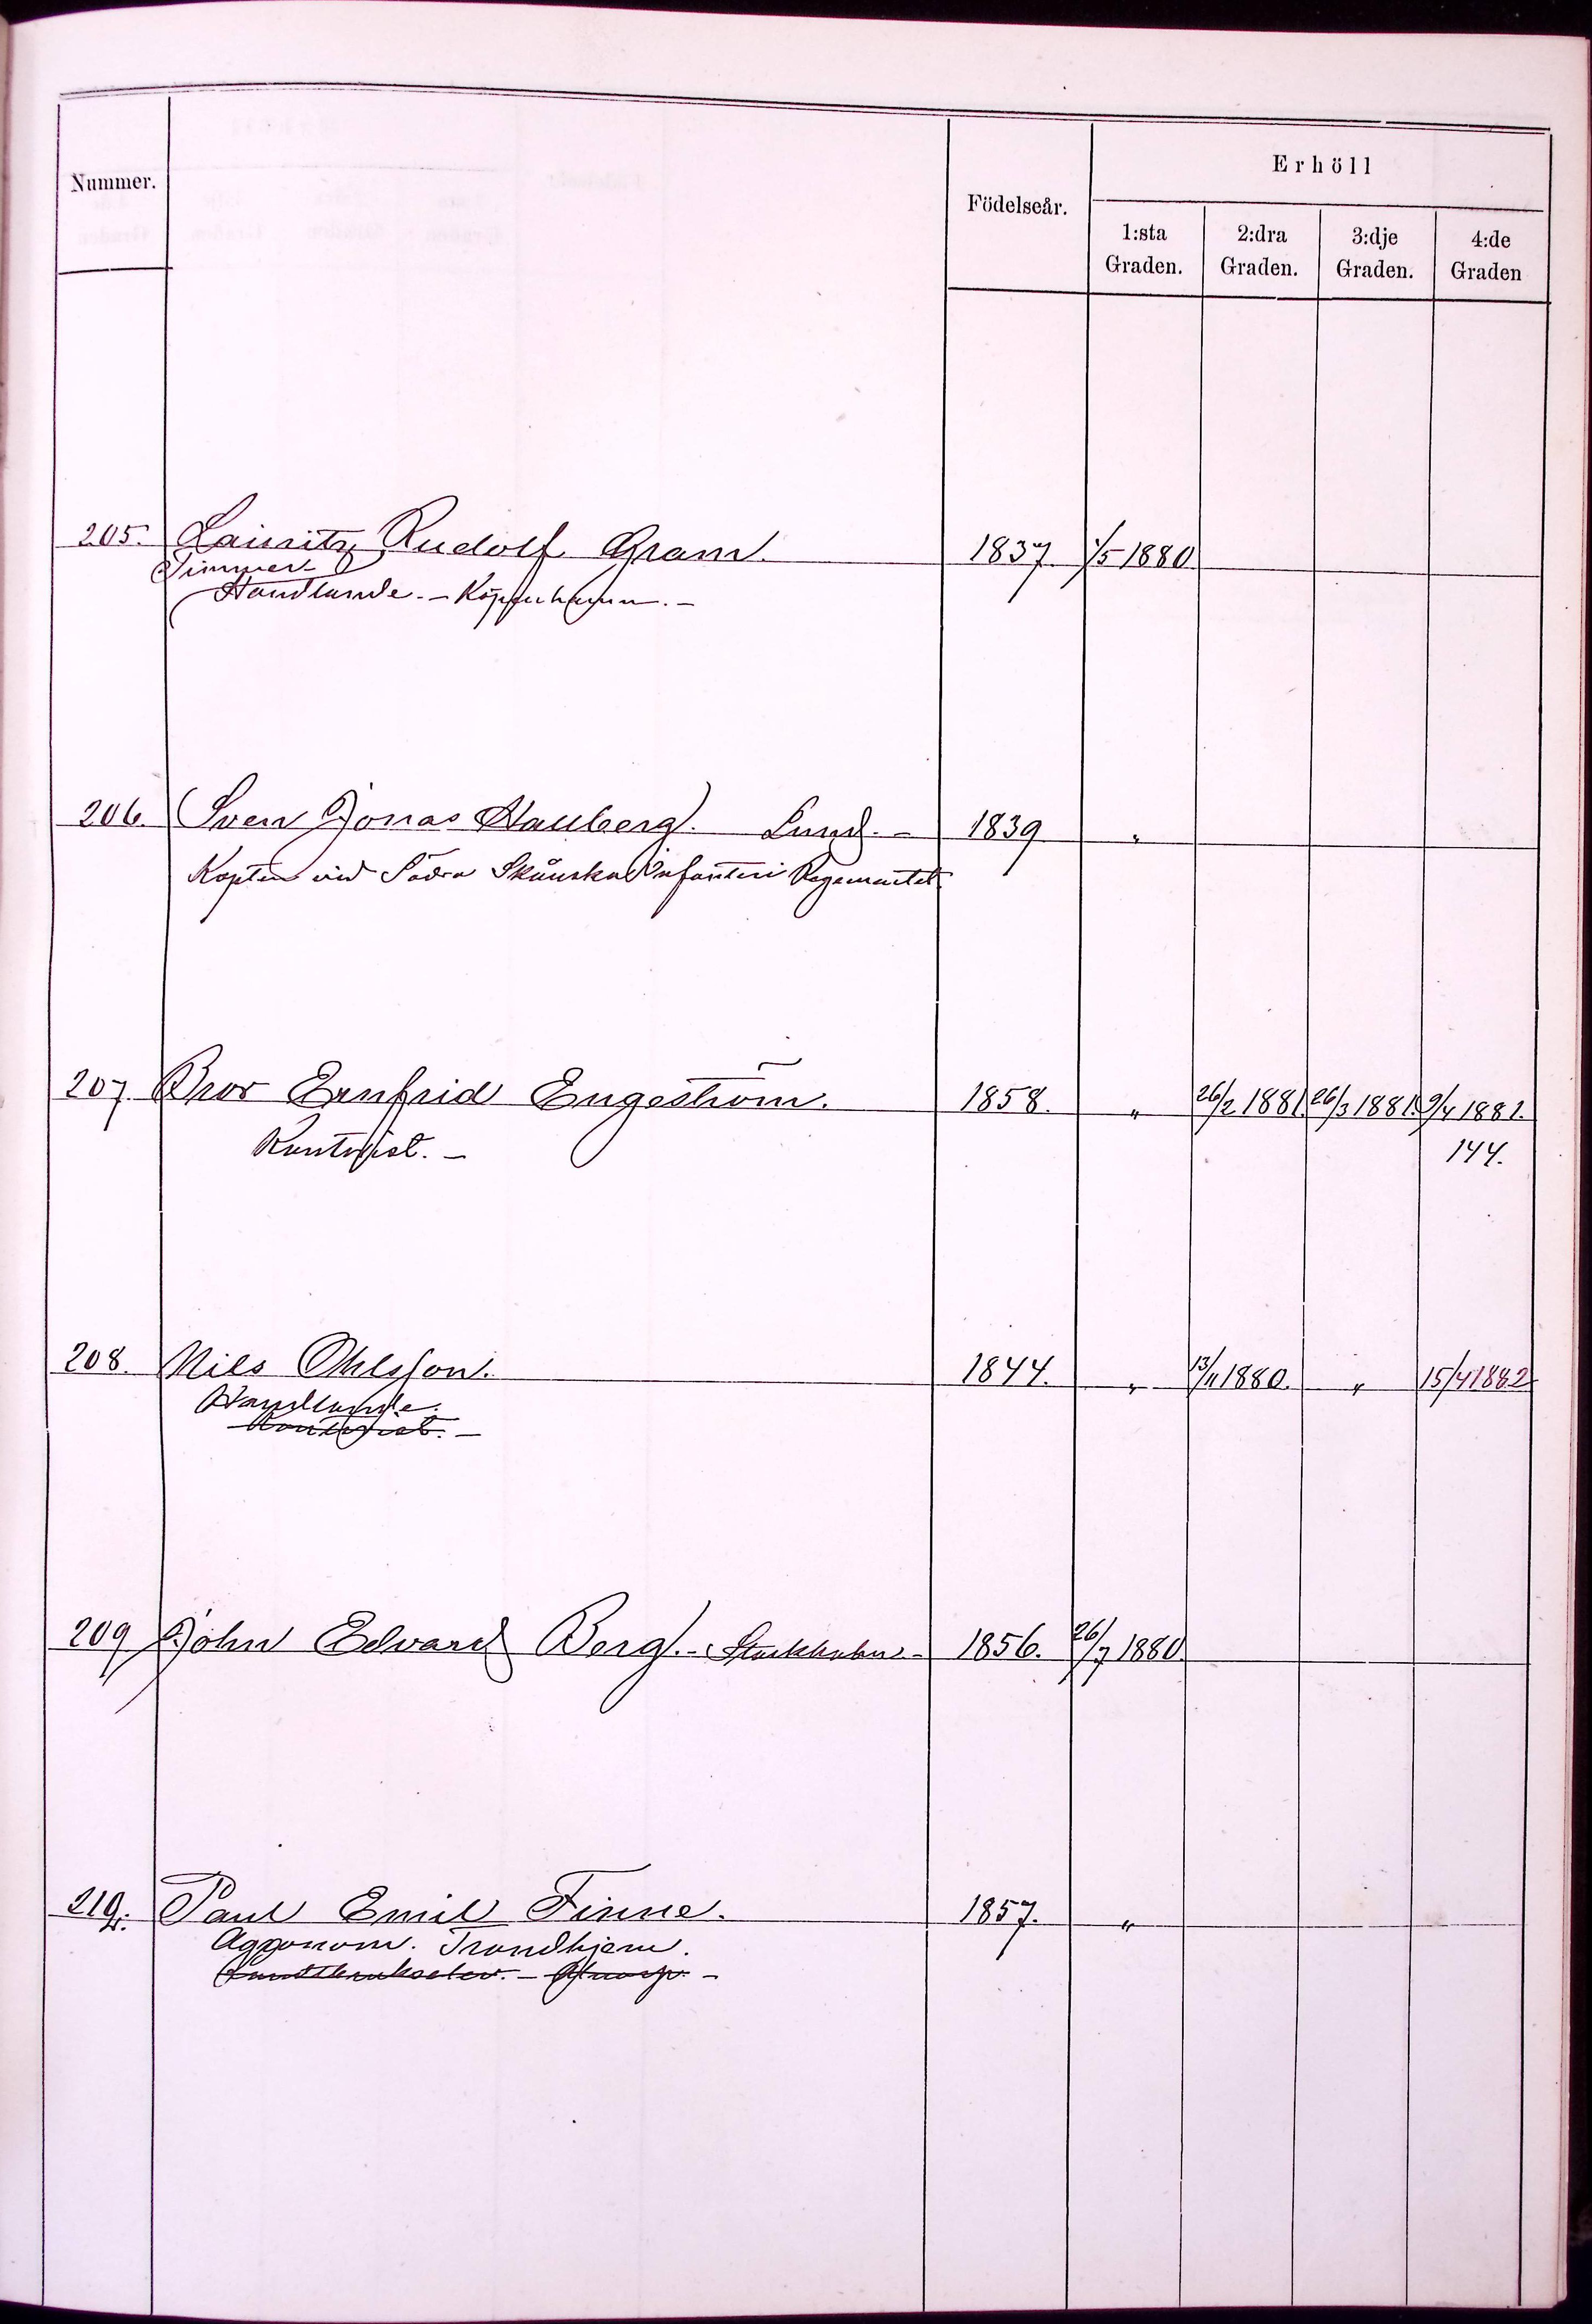 Nummer.
Födelseår.
Erhöll
1:sta Graden.
2:dra Graden.
3:dje Graden.
4:de Graden
205. Lauritz Rudolf Gram. 1837. 1/5 1880
Timmer-
Handlande. - Köpenhamn. -
206. Sven Jonas Hallberg. Lund. - 1839 "
Kapten vid Södra Skånska Infanteri Regementet
207. Bror Ernfrid Engeström. 1858. " 26/2 1881. 26/3 1881. 9/4 1881.
Kontorist. - 144.
208. Nils Ohlsson. 1844. " 13/11 1880. " 15/4 1882
Handlande.
Kontorist. -
209 John Edvard Berg. - Stockholm - 1856. 26/7 1880.
210. Paul Emil Finne. 1857. "
Agronom. Trondhjem.
Landtbrukselev. - Alnarp. -